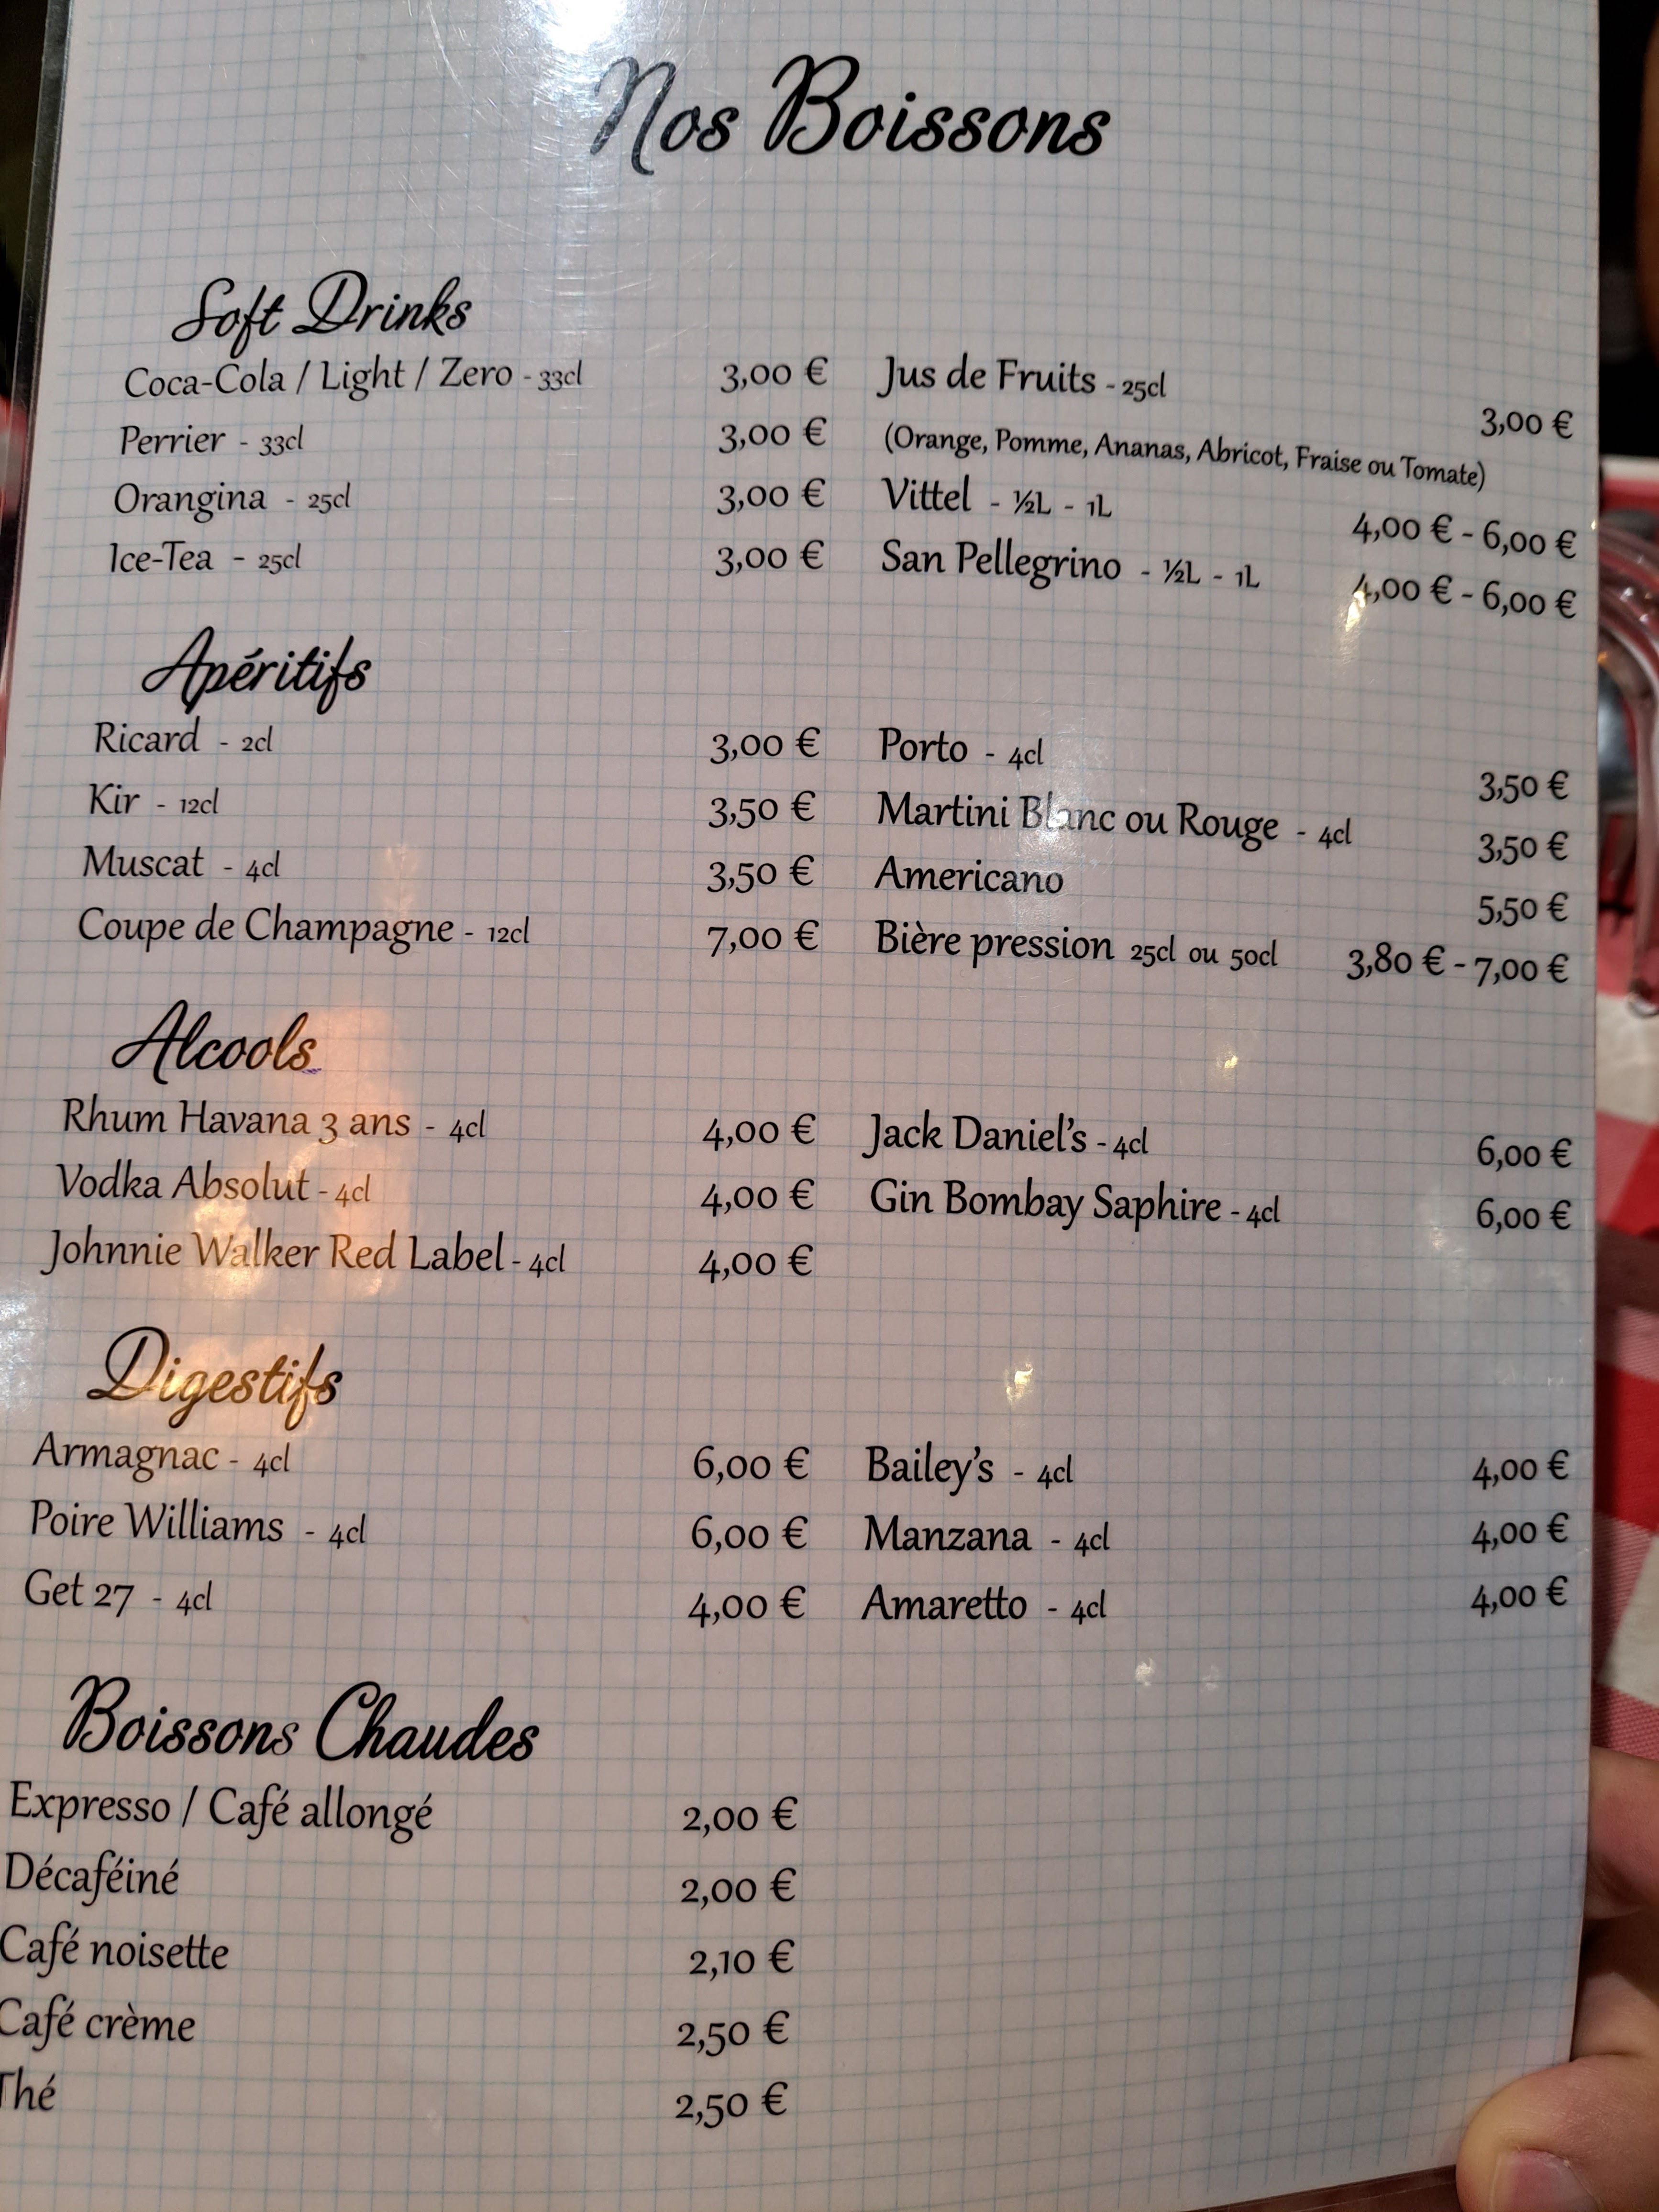 Nos Boissons
Soft Drinks
Coca-Cola / Light / Zero - 33cl 3,00 €
Perrier - 33cl 3,00 €
Orangina - 25cl 3,00 €
Ice-Tea - 25cl 3,00 €
Jus de Fruits - 25cl 3,00 €
(Orange, Pomme, Ananas, Abricot, Fraise ou Tomate)
Vittel - ½L - 1L 4,00 € - 6,00 €
San Pellegrino - ½L - 1L 4,00 € - 6,00 €
Apéritifs
Ricard - 2cl 3,00 €
Kir - 12cl 3,50 €
Muscat - 4cl 3,50 €
Coupe de Champagne - 12cl 7,00 €
Porto - 4cl 3,50 €
Martini Blanc ou Rouge - 4cl 3,50 €
Americano 5,50 €
Bière pression 25cl ou 50cl 3,80 € - 7,00 €
Alcools
Rhum Havana 3 ans - 4cl 4,00 €
Vodka Absolut - 4cl 4,00 €
Johnnie Walker Red Label - 4cl 4,00 €
Jack Daniel's - 4cl 6,00 €
Gin Bombay Saphire - 4cl 6,00 €
Digestifs
Armagnac - 4cl 6,00 €
Poire Williams - 4cl 6,00 €
Get 27 - 4cl 4,00 €
Bailey's - 4cl 4,00 €
Manzana - 4cl 4,00 €
Amaretto - 4cl 4,00 €
Boissons Chaudes
Expresso / Café allongé 2,00 €
Décaféiné 2,00 €
Café noisette 2,10 €
Café crème 2,50 €
Thé 2,50 €